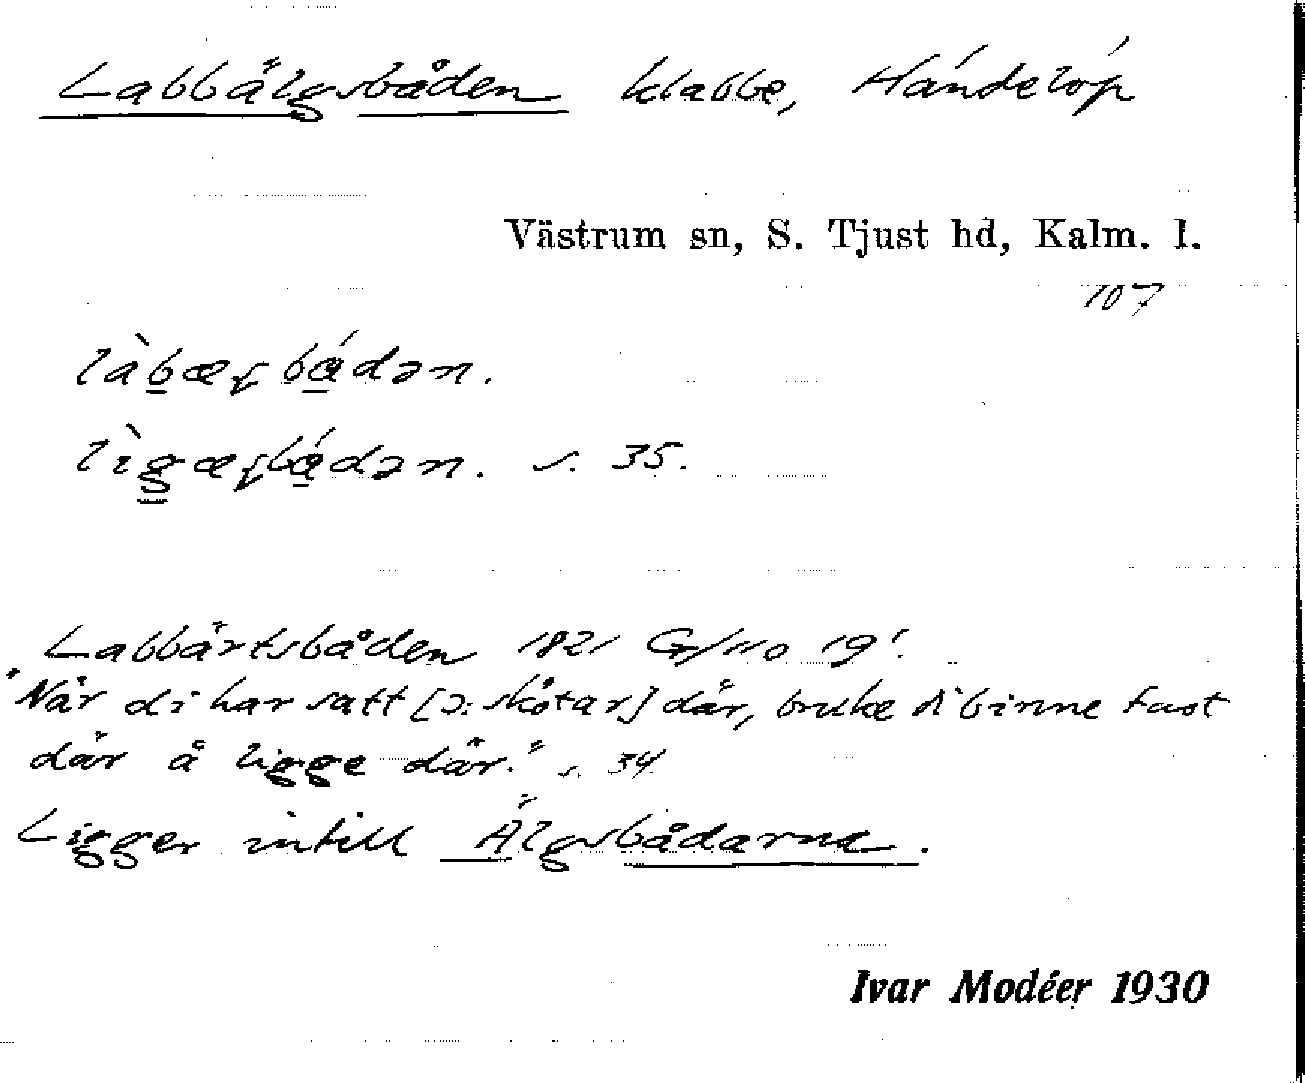 Labbälgsbåden klabbe, Händelöp
Västrum sn, S. Tjust hd, Kalm. l.
107
s. 35.
Labbärtsbåden 1821 G/110 19!
"När di har satt [ɔ: skötar] där, bruke di binne fast
där å ligge där." s. 34
Ligger intill Älgsbådarne.
Ivar Modéer 1930